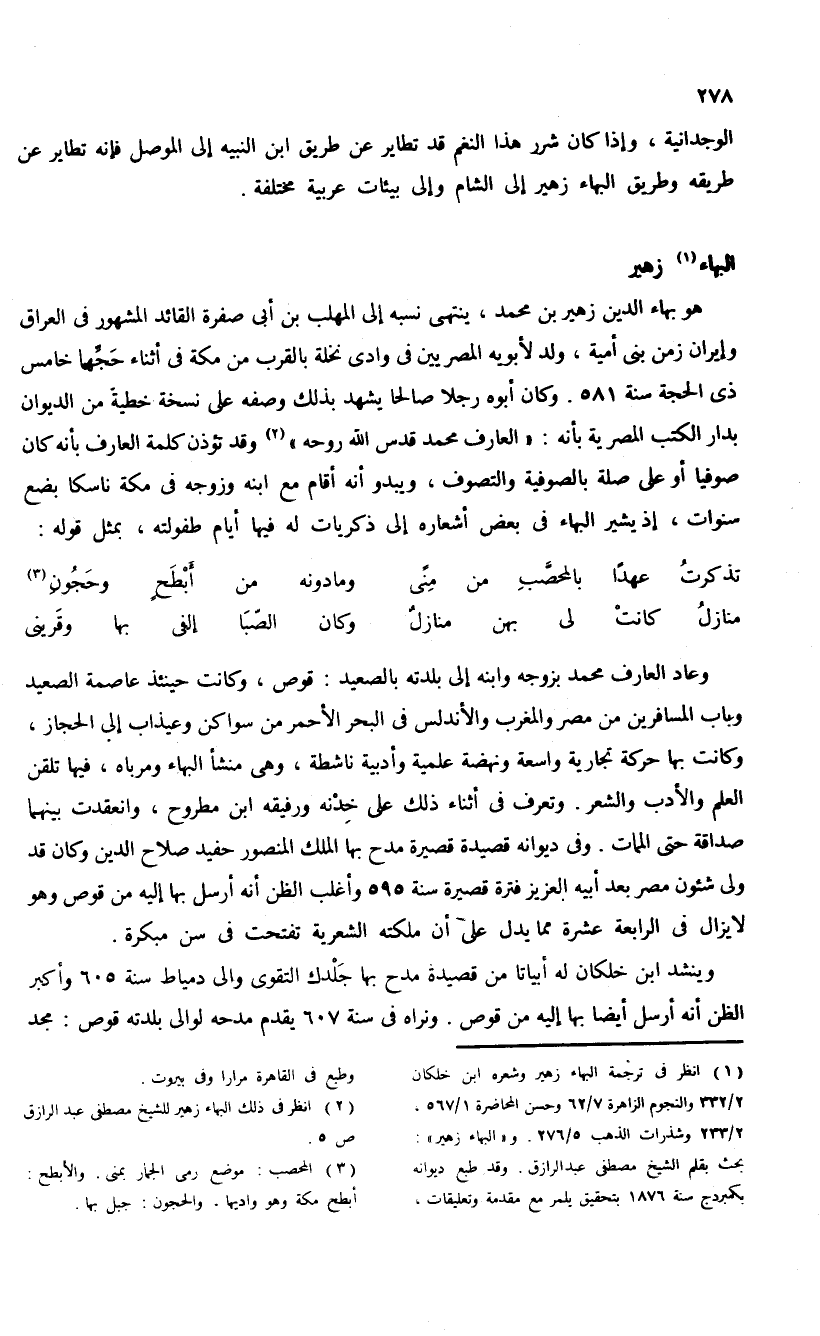 ٢٧٨
الوجدانية ، وإذا كان شرر هذا النغم قد تطاير عن طريق ابن النبيه إلى الموصل فإنه تطاير عن
طريقه وطريق البهاء زهير إلى الشام وإلى بيئات عربية مختلفة .
البهاء(١) زهير
هو بهاء الدين زهير بن محمد ، ينتهى نسبه إلى المهلب بن أبى صفرة القائد المشهور فى العراق
وإيران زمن بنى أمية ، ولد لأبويه المصريين فى وادى نخلة بالقرب من مكة فى أثناء حَجِّها خامس
ذى الحجة سنة ٥٨١ . وكان أبوه رجلا صالحا يشهد بذلك وصفه على نسخة خطية من الديوان
بدار الكتب المصرية بأنه : « العارف محمد قدس الله روحه »(٢) وقد تؤذن كلمة العارف بأنه كان
صوفيا أو على صلة بالصوفية والتصوف ، ويبدو أنه أقام مع ابنه وزوجه فى مكة ناسكا بضع
سنوات ، إذ يشير البهاء فى بعض أشعاره إلى ذكريات له فيها أيام طفولته ، بمثل قوله :
تذكرتُ عهدًا بالمحصَّبِ من مِنًى ومادونه من أَبْطَحٍ وحَجُونِ(٣)
منازلُ كانتْ لى بهن منازلٌ وكان الصِّبَا إلفى بها وقَرينى
وعاد العارف محمد بزوجه وابنه إلى بلدته بالصعيد : قوص ، وكانت حينئذ عاصمة الصعيد
وباب المسافرين من مصر والمغرب والأندلس فى البحر الأحمر من سواكن وعيذاب إلى الحجاز ،
وكانت بها حركة تجارية واسعة ونهضة علمية وأدبية ناشطة ، وهى منشأ البهاء ومرباه ، فيها تلقن
العلم والأدب والشعر . وتعرف فى أثناء ذلك على خِدْنه ورفيقه ابن مطروح ، وانعقدت بينهما
صداقة حتى المات . وفى ديوانه قصيدة قصيرة مدح بها الملك المنصور حفيد صلاح الدين وكان قد
ولى شئون مصر بعد أبيه العزيز فترة قصيرة سنة ٥٩٥ وأغلب الظن أنه أرسل بها إليه من قوص وهو
لايزال فى الرابعة عشرة مما يدل على أن ملكته الشعرية تفتحت فى سن مبكرة .
وينشد ابن خلكان له أبياتا من قصيدة مدح بها جَلْدك التقوى والى دمياط سنة ٦٠٥ وأكبر
الظن أنه أرسل أيضا بها إليه من قوص . ونراه فى سنة ٦٠٧ يقدم مدحه لوالى بلدته قوص : مجد
(١) انظر فى ترجمة البهاء زهير وشعره ابن خلكان
٣٣٢/٢ والنجوم الزاهرة ٦٢/٧ وحسن المحاضرة ٥٦٧/١ ،
٢٣٣/٢ وشذرات الذهب ٢٧٦/٥ . و « البهاء زهير » :
بحث بقلم الشيخ مصطفى عبدالرازق . وقد طبع ديوانه
بكمبردج سنة ١٨٧٦ بتحقيق پلمر مع مقدمة وتعليقات ،
وطبع فى القاهرة مرارا وفى بيروت .
(٢) انظر فى ذلك البهاء زهير للشيخ مصطفى عبد الرازق
ص ٥ .
(٣) المحصب : موضع رمى الجمار بمنى . والأبطح :
أبطح مكة وهو واديها . والحجون : جبل بها .